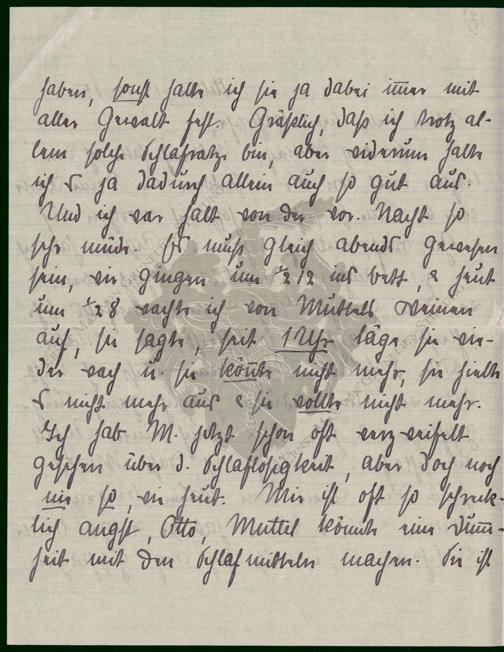 haben, sonst halte ich sie ja dabei im̅er mit
aller Gewalt fest. Gräßlich, daß ich trotz al-
lem solche Schlafratze bin, aber wiederum halte
ich's ja dadurch allein auch so gut aus.
Und ich war halt von der vor. Nacht so
sehr müde. Es muß gleich abends gewesen
sein, wir gingen um ½12 ins bett, & heut
um ½8 wachte ich von Muttels Weinen
auf, sie sagte, seit 1 Uhr läge sie wie-
der wach u. sie kön̅te nicht mehr, sie hielte
s nicht mehr aus & sie wollte nicht mehr.
Ich hab M. jetzt schon oft verzweifelt
gesehen über d. Schlaflosigkeit, aber doch noch
nie so, wie heut. Mir ist oft so schreck-
lich angst, Otto, Muttel könnte eine Dum̅-
heit mit den Schlafmitteln machen. Sie ist